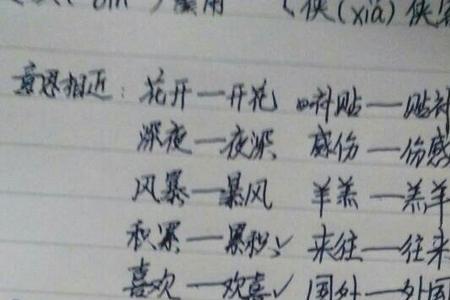 用 侠(xiá)侠客
意思相近：花开—开花 补贴—贴补
深夜—夜深 感伤—伤感
风暴—暴风 羊羔—羔羊
积累—累积✓ 来往—往来
喜欢—欢喜✓ 国外—外国